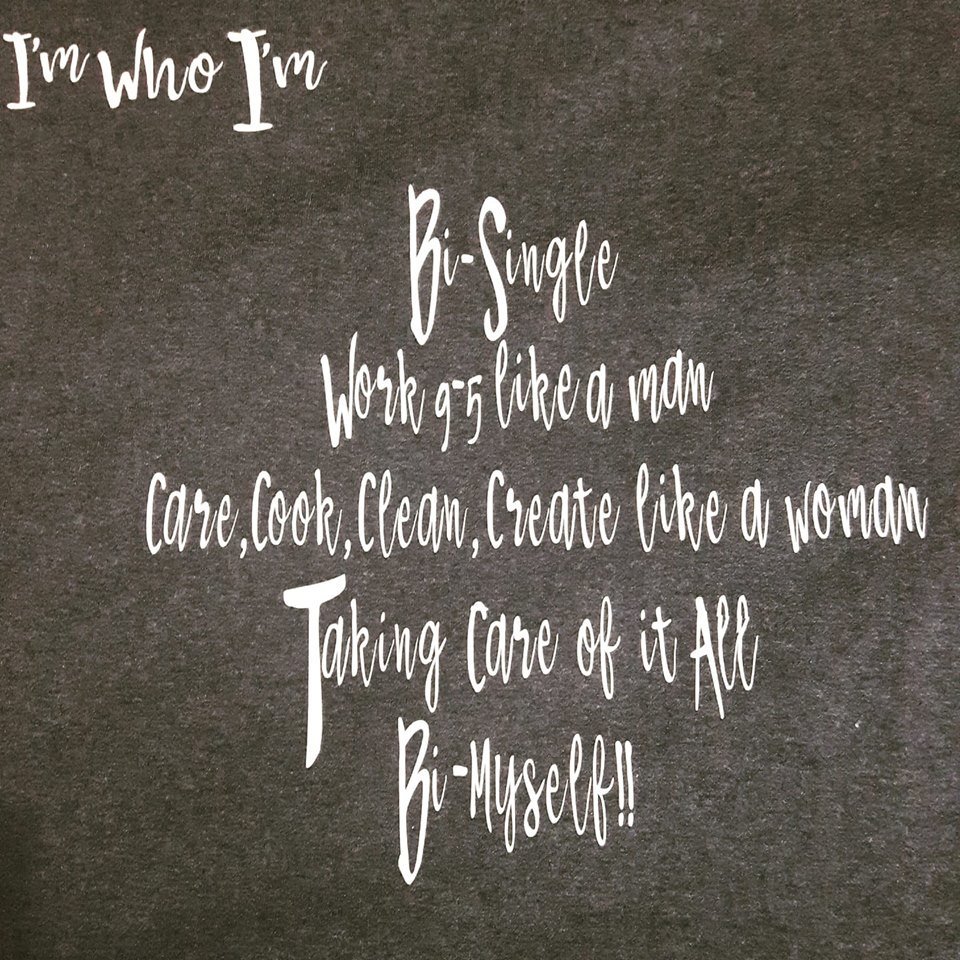 I'm Who I'm
Bi-Single
Work 9-5 like a man
Care,Cook,Clean,Create like a woman
Taking Care of it All
Bi-Myself!!